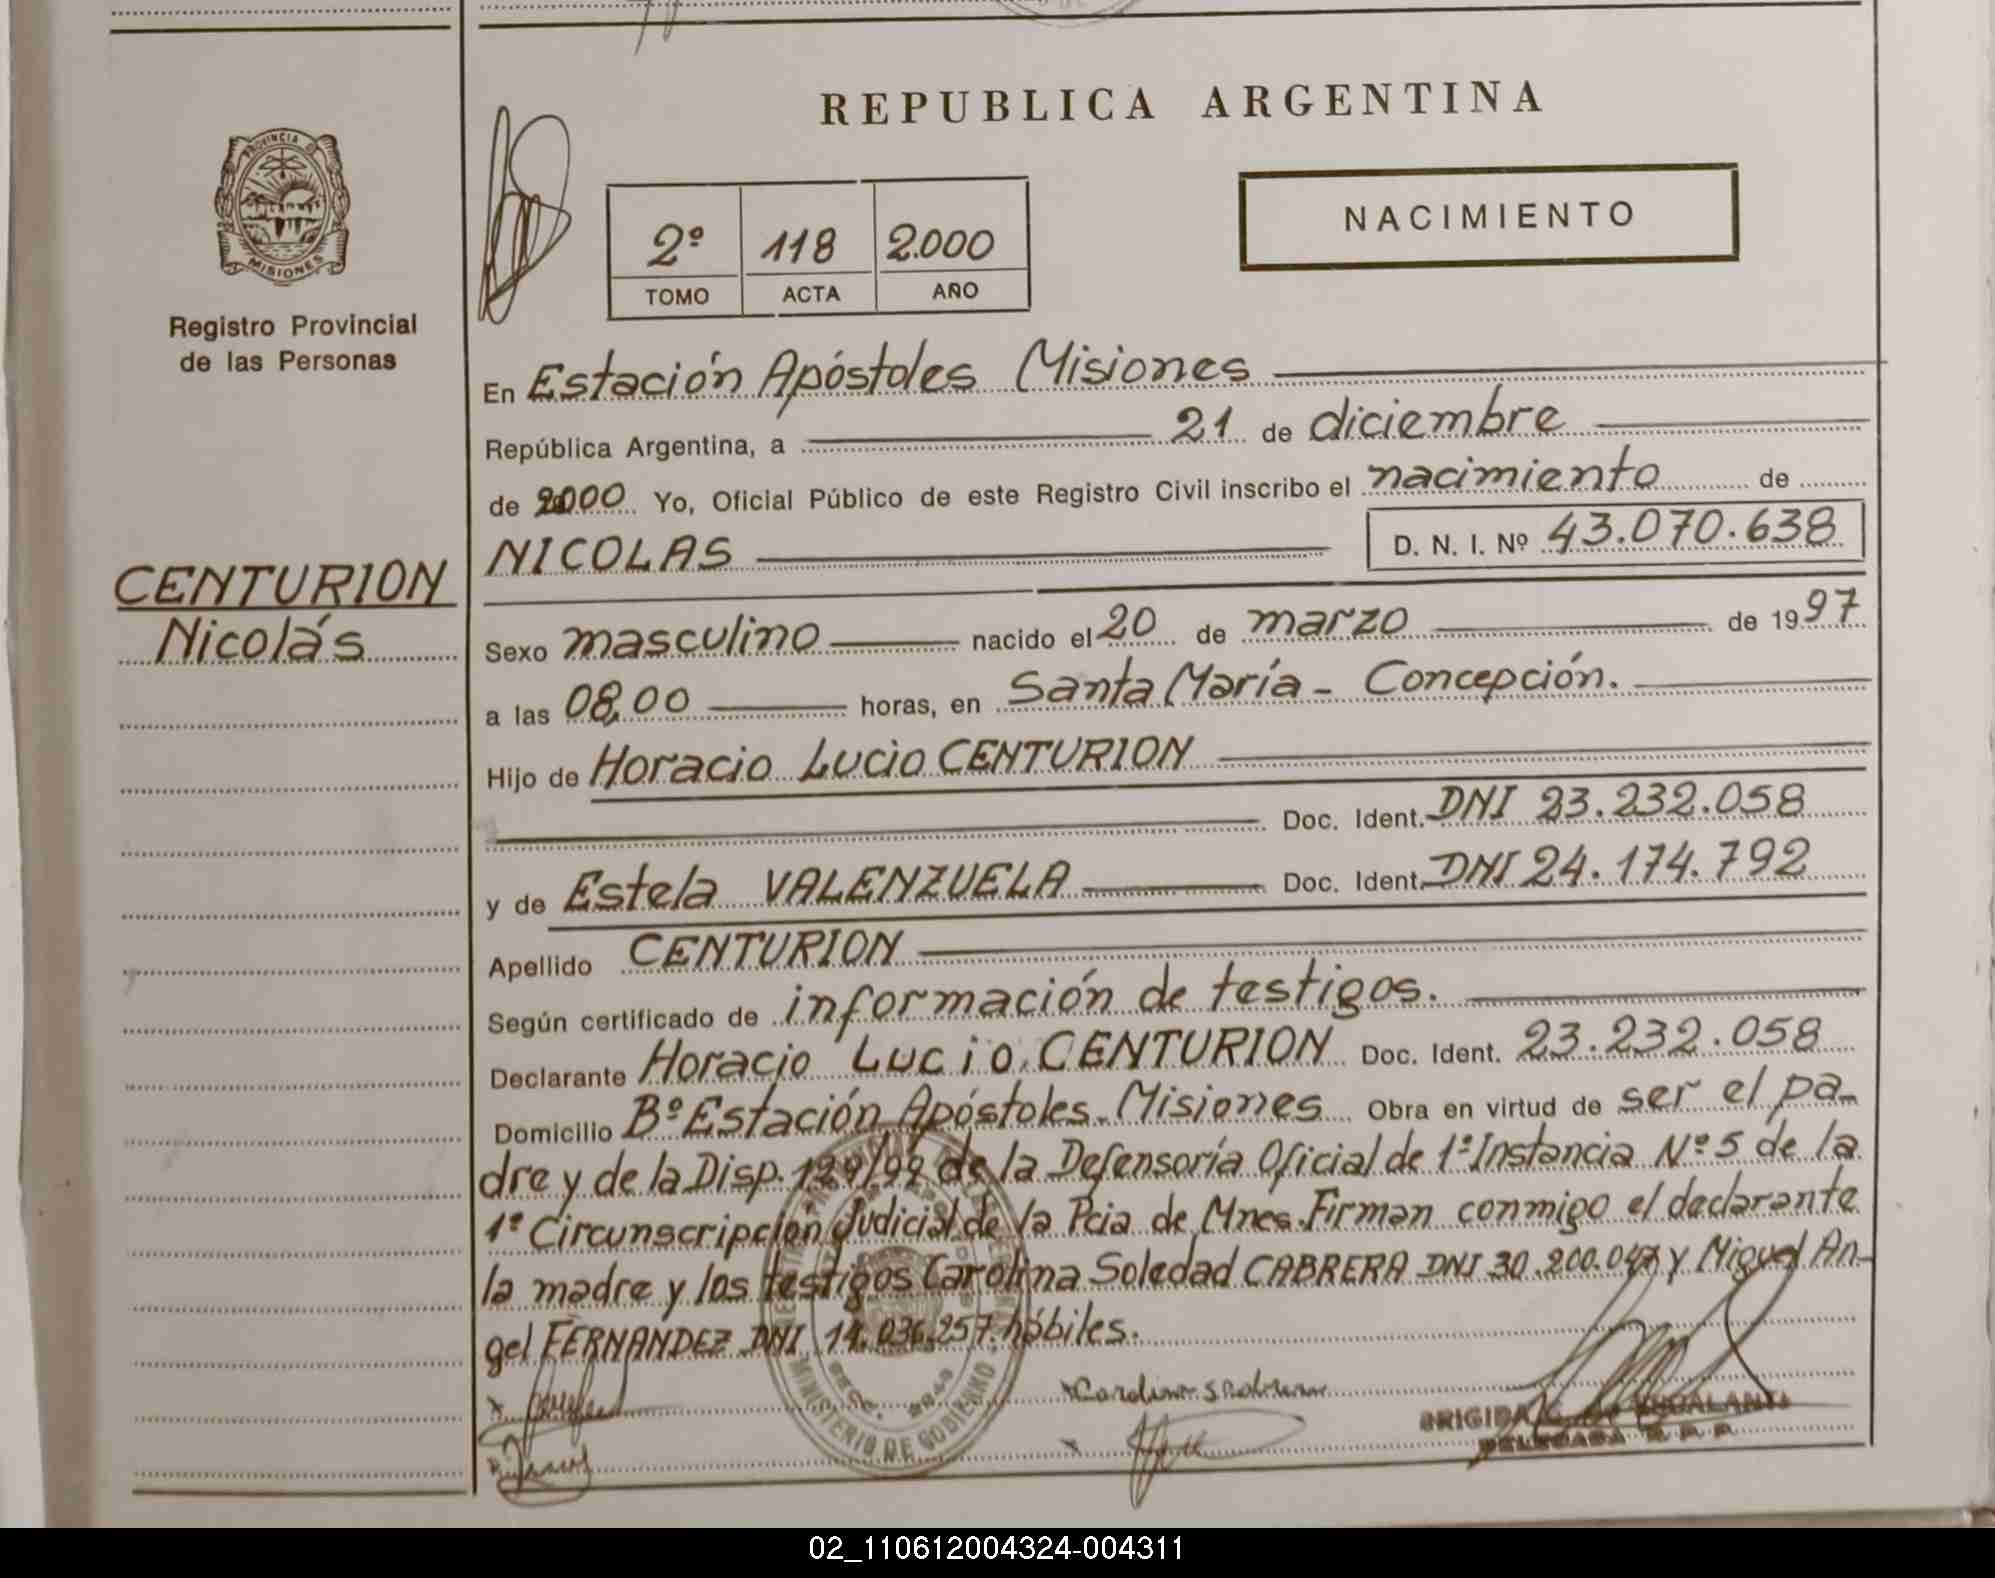 REPUBLICA ARGENTINA
PROVINCIA DE
MISIONES
Registro Provincial
de las Personas
2º 118 2.000
TOMO ACTA AÑO
NACIMIENTO
CENTURION
Nicolás
En Estación Apóstoles Misiones
República Argentina, a 21 de diciembre
de 2000 Yo, Oficial Público de este Registro Civil inscribo el nacimiento de
NICOLAS D. N. I. Nº 43.070.638
Sexo masculino nacido el 20 de marzo de 1997
a las 08,00 horas, en Santa María - Concepción.
Hijo de Horacio Lucio CENTURION
Doc. Ident. DNI 23.232.058
y de Estela VALENZUELA Doc. Ident. DNI 24.174.792
Apellido CENTURION
Según certificado de información de testigos.
Declarante Horacio Lucio CENTURION Doc. Ident. 23.232.058
Domicilio Bº Estación Apóstoles. Misiones Obra en virtud de ser el pa-
dre y de la Disp. de la Defensoría Oficial de 1º Instancia Nº 5 de la
1º Circunscripción Judicial de la Pcia de Mnes. Firman conmigo el declarante
la madre y los testigos Carolina Soledad CABRERA DNI 30.200.047 y Miguel An-
gel FERNANDEZ DNI 14.036.257 hábiles.
MINISTERIO DE GOBIERNO
02_110612004324-004311